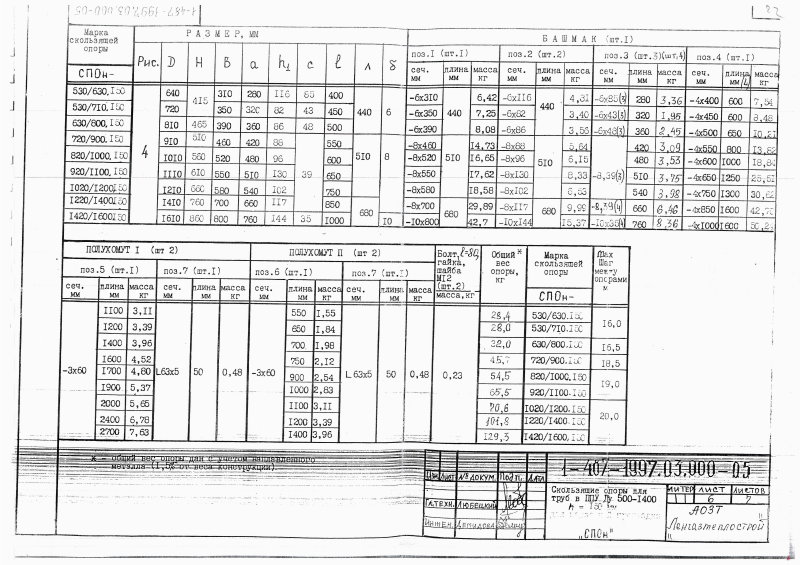 Марка скользящей опоры РАЗМЕР, ММ БАШМАК (шт.I)
поз.I (шт.I) поз.2 (шт.2) поз.3 (шт.3)(шт.4) поз.4 (шт.I)
СПОн- Рис. D H B a h₁ c l л δ сеч. мм длина мм масса кг сеч. мм длина мм масса кг сеч. мм длина мм масса кг сеч. мм длина мм масса кг
530/630.I50 4 640 4I5 3I0 280 II6 85 400 440 6 -6х3I0 440 6,42 -6хII6 440 4,8I -6х85(3) 280 3,36 -4х400 600 7,54
530/7I0.I50 720 350 320 82 43 450 -6х350 7,25 -6х82 3,40 -6х43(3) 320 1,95 -4х450 600 8,48
630/800.I50 8I0 465 390 360 86 48 500 -6х390 8,08 -6х86 3,56 -6х48(3) 360 2,45 -4х500 650
720/900.I50 9I0 5I0 460 420 88 39 550 5I0 8 -8х460 5I0 I4,73 -8х88 5I0 5,64 -8,39(3) 420 3,09 -4х550 800
820/I000.I50 I0I0 560 520 480 96 600 -8х520 I6,65 -8х96 6,I5 480 3,53 -4х600 I000 I8,84
920/II00.I50 III0 6I0 550 5I0 I30 650 -8х550 I7,62 -8хI30 8,33 5I0 3,75 -4х650 I250
I020/I200.I50 I2I0 660 580 540 I02 750 -8х580 I8,58 -8хI02 540 3,98 -4х750 I300
I220/I400.I50 I4I0 760 700 660 II7 850 680 -8х700 680 29,89 -8хII7 680 9,99 660 6,46 -4х850 I600
I420/I600.I50 I6I0 860 800 760 I44 35 I000 I0 -I0х800 42,7 -I0хI44 I5,37 -I0х35(4) 760 8,36 -4хI000 I600
ПОЛУХОМУТ I (шт 2) ПОЛУХОМУТ П (шт 2) Болт, гайка, шайба MI2 (шт.2) Общий* вес опоры, кг Марка скользящей опоры Max Шаг между опорами м
поз.5 (шт.I) поз.7 (шт.I) поз.6 (шт.I) поз.7 (шт.I)
сеч. мм длина мм масса кг сеч. мм длина мм масса кг сеч. мм длина мм масса кг сеч. мм длина мм масса кг масса,кг СПОн-
-3х60 II00 3,II L63х5 50 0,48 -3х60 550 I,55 L 63х5 50 0,48 0,23 28,4 530/630.I50 I6,0
I200 3,39 650 I,84 28,0 530/7I0.I50
I400 3,96 700 I,98 32,0 630/800.I50 I6,5
I600 4,52 750 2,I2 720/900.I50 I8,5
I700 4,80 900 2,54 54,5 820/I000.I50 I9,0
I900 5,37 I000 2,83 65,5 920/II00.I50
2000 5,65 II00 3,II I020/I200.I50 20,0
2400 6,78 I200 3,39 I220/I400.I50
2700 7,63 I400 3,96 129,3 I420/I600.I50
* - общий вес опоры дан с учетом наплавленного
металла (I,5% от веса конструкции).
1-487-1997.03.000-05
Изм Лист № ДОКУМ. Подп. Дата
Скользящие опоры для
труб в ППУ Ду 500-I400
h = 150 мм
„СПОн"
ЛИТЕР ЛИСТ ЛИСТОВ
6 7
ГЛ.ТЕХН. ЛЮБЕЦКИЙ
ИНЖЕН. ДЕМИДОВА
АОЗТ
„Ленгазтеплострой"